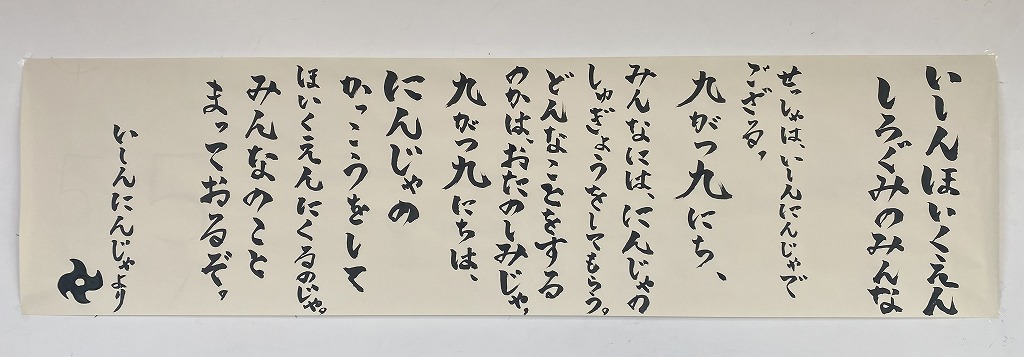 いしんほいくえん
しろぐみのみんな
せっしゃは、いしんにんじゃで
ござる。
九がつ九にち、
みんなには、にんじゃの
しゅぎょうをしてもらう。
どんなことをする
のかは、おたのしみじゃ。
九がつ九にちは、
にんじゃの
かっこうをして
ほいくえんにくるのじゃ。
みんなのこと
まっておるぞ。
いしんにんじゃより